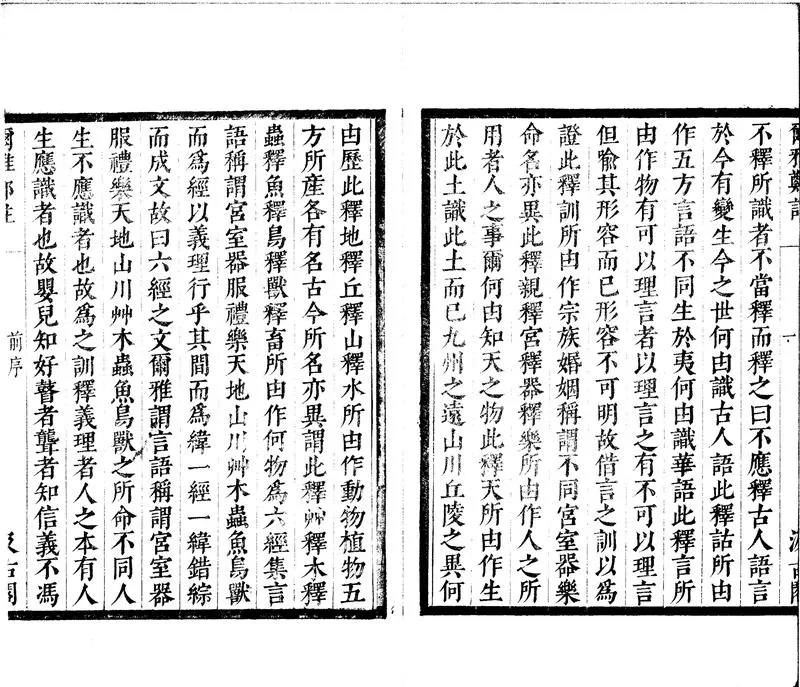 爾雅鄭註
一
汲古閣
不釋所識者不當釋而釋之曰不應釋古人語言
於今有變生今之世何由識古人語此釋詁所由
作五方言語不同生於夷何由識華語此釋言所
由作物有可以理言者以理言之有不可以理言
但喻其形容而已形容不可明故借言之訓以為
證此釋訓所由作宗族婚姻稱謂不同宮室器樂
命名亦異此釋親釋宮釋器釋樂所由作人之所
用者人之事爾何由知天之物此釋天所由作生
於此土識此土而已九州之遠山川丘陵之異何
由歷此釋地釋丘釋山釋水所由作動物植物五
方所産各有名古今所名亦異謂此釋艸釋木釋
蟲釋魚釋鳥釋獸釋畜所由作何物爲六經集言
語稱謂宮室器服禮樂天地山川艸木蟲魚鳥獸
而爲經以義理行乎其間而爲緯一經一緯錯綜
而成文故曰六經之文爾雅謂言語稱謂宮室器
服禮樂天地山川艸木蟲魚鳥獸之所命不同人
生不應識者也故爲之訓釋義理者人之本有人
生應識者也故嬰兒知好瞽者聾者知信義不馮
爾雅鄭註
一
前序
汲古閣